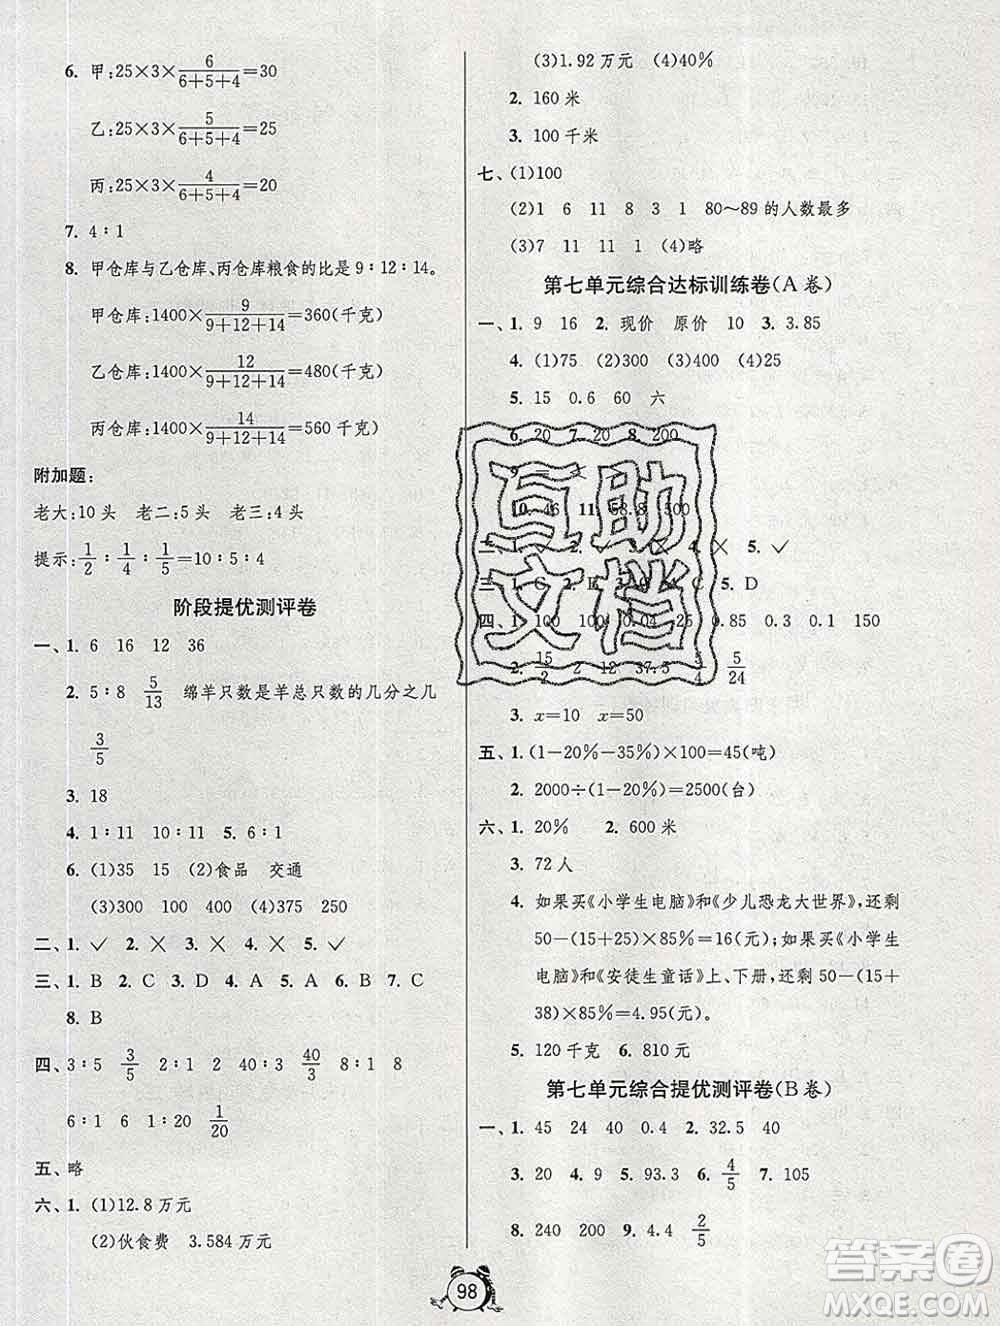 6. 甲:25×3×6/(6+5+4)=30
乙:25×3×5/(6+5+4)=25
丙:25×3×4/(6+5+4)=20
7. 4∶1
8. 甲仓库与乙仓库、丙仓库粮食的比是9∶12∶14。
甲仓库:1400×9/(9+12+14)=360(千克)
乙仓库:1400×12/(9+12+14)=480(千克)
丙仓库:1400×14/(9+12+14)=560 千克)
附加题:
老大:10头 老二:5头 老三:4头
提示:1/2∶1/4∶1/5=10∶5∶4
阶段提优测评卷
一、1. 6 16 12 36
2. 5∶8 5/13 绵羊只数是羊总只数的几分之几
3/5
3. 18
4. 1∶11 10∶11 5. 6∶1
6. (1)35 15 (2)食品 交通
(3)300 100 400 (4)375 250
二、1. ✓ 2. × 3. × 4. × 5. ✓
三、1. B 2. C 3. D 4. A 5. B 6. B 7. C
8. B
四、3∶5 3/5 2∶1 2 40∶3 40/3 8∶1 8
6∶1 6 1∶20 1/20
五、略
六、1. (1)12.8万元
(2)伙食费 3.584万元
(3)1.92万元 (4)40%
2. 160米
3. 100千米
七、(1)100
(2)1 6 11 8 3 1 80～89的人数最多
(3)7 11 11 1 (4)略
第七单元综合达标训练卷(A卷)
一、1. 9 16 2. 现价 原价 10 3. 3.85
4. (1)75 (2)300 (3)400 (4)25
5. 15 0.6 60 六
6. 20 7. 20 8. 200
9. =
10. 46 11. 58.8 500
二、1. ✓ 2. 4. × 5. ✓
三、1. C 2. 4. C 5. D
四、1. 100 100 0.04 25 0.85 0.3 0.1 150
2. 15/2 2 12 37.5 5/24
3. x=10 x=50
五、1. (1-20%-35%)×100=45(吨)
2. 2000÷(1-20%)=2500(台)
六、1. 20% 2. 600米
3. 72人
4. 如果买《小学生电脑》和《少儿恐龙大世界》,还剩
50-(15+25)×85%=16(元);如果买《小学生
电脑》和《安徒生童话》上、下册,还剩50-(15+
38)×85%=4.95(元)。
5. 120千克 6. 810元
第七单元综合提优测评卷(B卷)
一、1. 45 24 40 0.4 2. 32.5 40
3. 20 4. 9 5. 93.3 6. 4/5 7. 105
8. 240 200 9. 4.4 2/5
98
互助
文档
答案圈
MXQE.COM